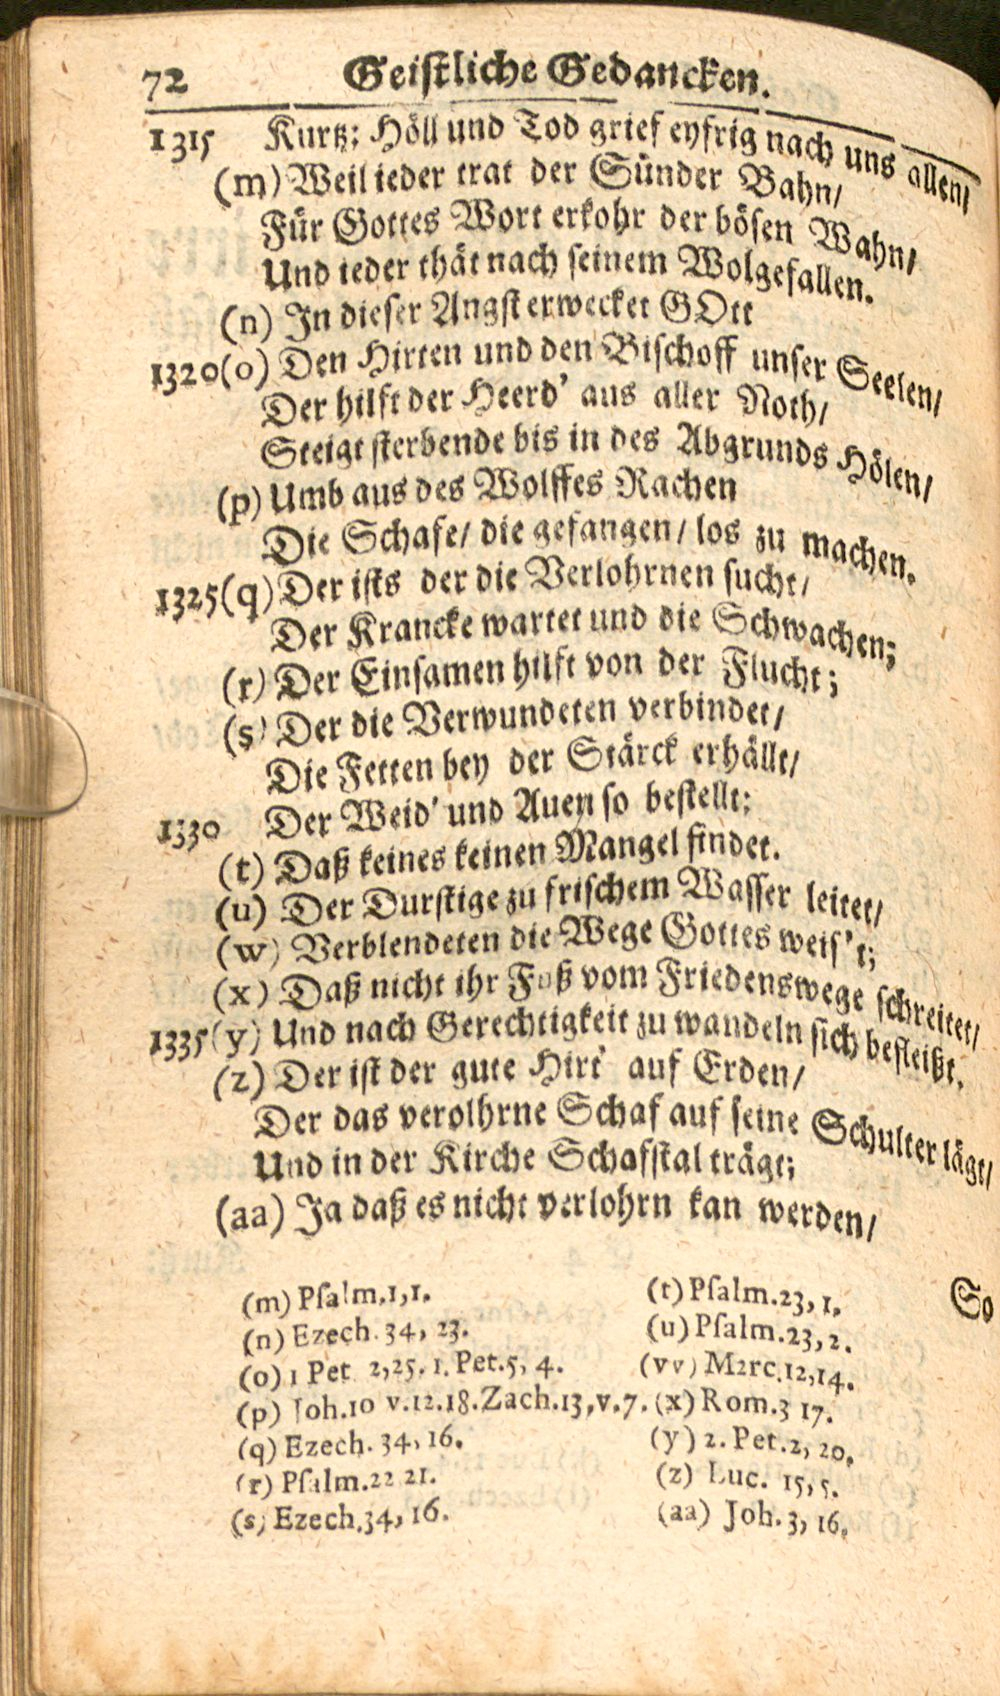 72 Geistliche Gedancken.
1315 Kurtz: Höll und Tod grief eyfrig nach uns allen/
(m) Weil ieder trat der Sünder Bahn/
Für Gottes Wort erkohr der bösen Wahn/
Und ieder thät nach seinem Wolgefallen.
(n) In dieser Angst erwecket GOtt
1320 (o) Den Hirten und den Bischoff unser Seelen/
Der hilft der Heerd' aus aller Noth/
Steigt sterbende bis in des Abgrunds Hölen/
(p) Umb aus des Wolffes Rachen
Die Schafe/ die gefangen/ los zu machen.
1325 (q) Der ists der die Verlohrnen sucht/
Der Krancke wartet und die Schwachen;
(r) Der Einsamen hilft von der Flucht;
(s) Der die Verwundeten verbindet/
Die Fetten bey der Stärck erhällt/
1330 Der Weid' und Auen so bestellt:
(t) Daß keines keinen Mangel findet.
(u) Der Durstige zu frischem Wasser leitet/
(w) Verblendeten die Wege Gottes weis't;
(x) Daß nicht ihr Fuß vom Friedenswege schreitet/
1335 (y) Und nach Gerechtigkeit zu wandeln sich befleißt.
(z) Der ist der gute Hirt' auf Erden/
Der das verolhrne Schaf auf seine Schulter lägt/
Und in der Kirche Schafstal trägt;
(aa) Ja daß es nicht verlohrn kan werden/
So
(m) Psalm.1,1.
(n) Ezech. 34, 23.
(o) 1 Pet 2,25. 1. Pet.5, 4.
(p) Joh.10 v.12.18. Zach.13,v.7.
(q) Ezech. 34, 16.
(r) Psalm.22 21.
(s) Ezech.34, 16.
(t) Psalm.23, 1.
(u) Psalm.23,2.
(vv) Marc.12,14.
(x) Rom.3 17.
(y) 2. Pet.2, 20.
(z) Luc. 15, 5.
(aa) Joh. 3, 16.